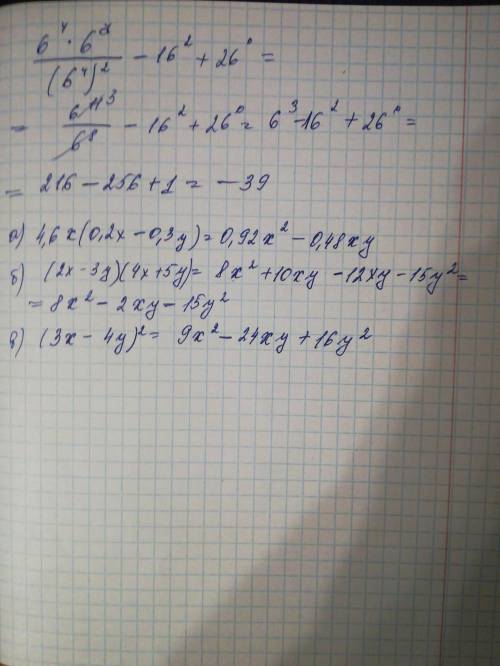 6⁴ · 6⁷ / (6⁴)² − 16² + 26⁰ =
= 6¹¹ ³ / 6⁸ − 16² + 26⁰ = 6³ − 16² + 26⁰ =
= 216 − 256 + 1 = − 39
а) 4,6x(0,2x − 0,3y) = 0,92x² − 0,48xy
б) (2x − 3y)(4x + 5y) = 8x² + 10xy − 12xy − 15y² =
= 8x² − 2xy − 15y²
в) (3x − 4y)² = 9x² − 24xy + 16y²